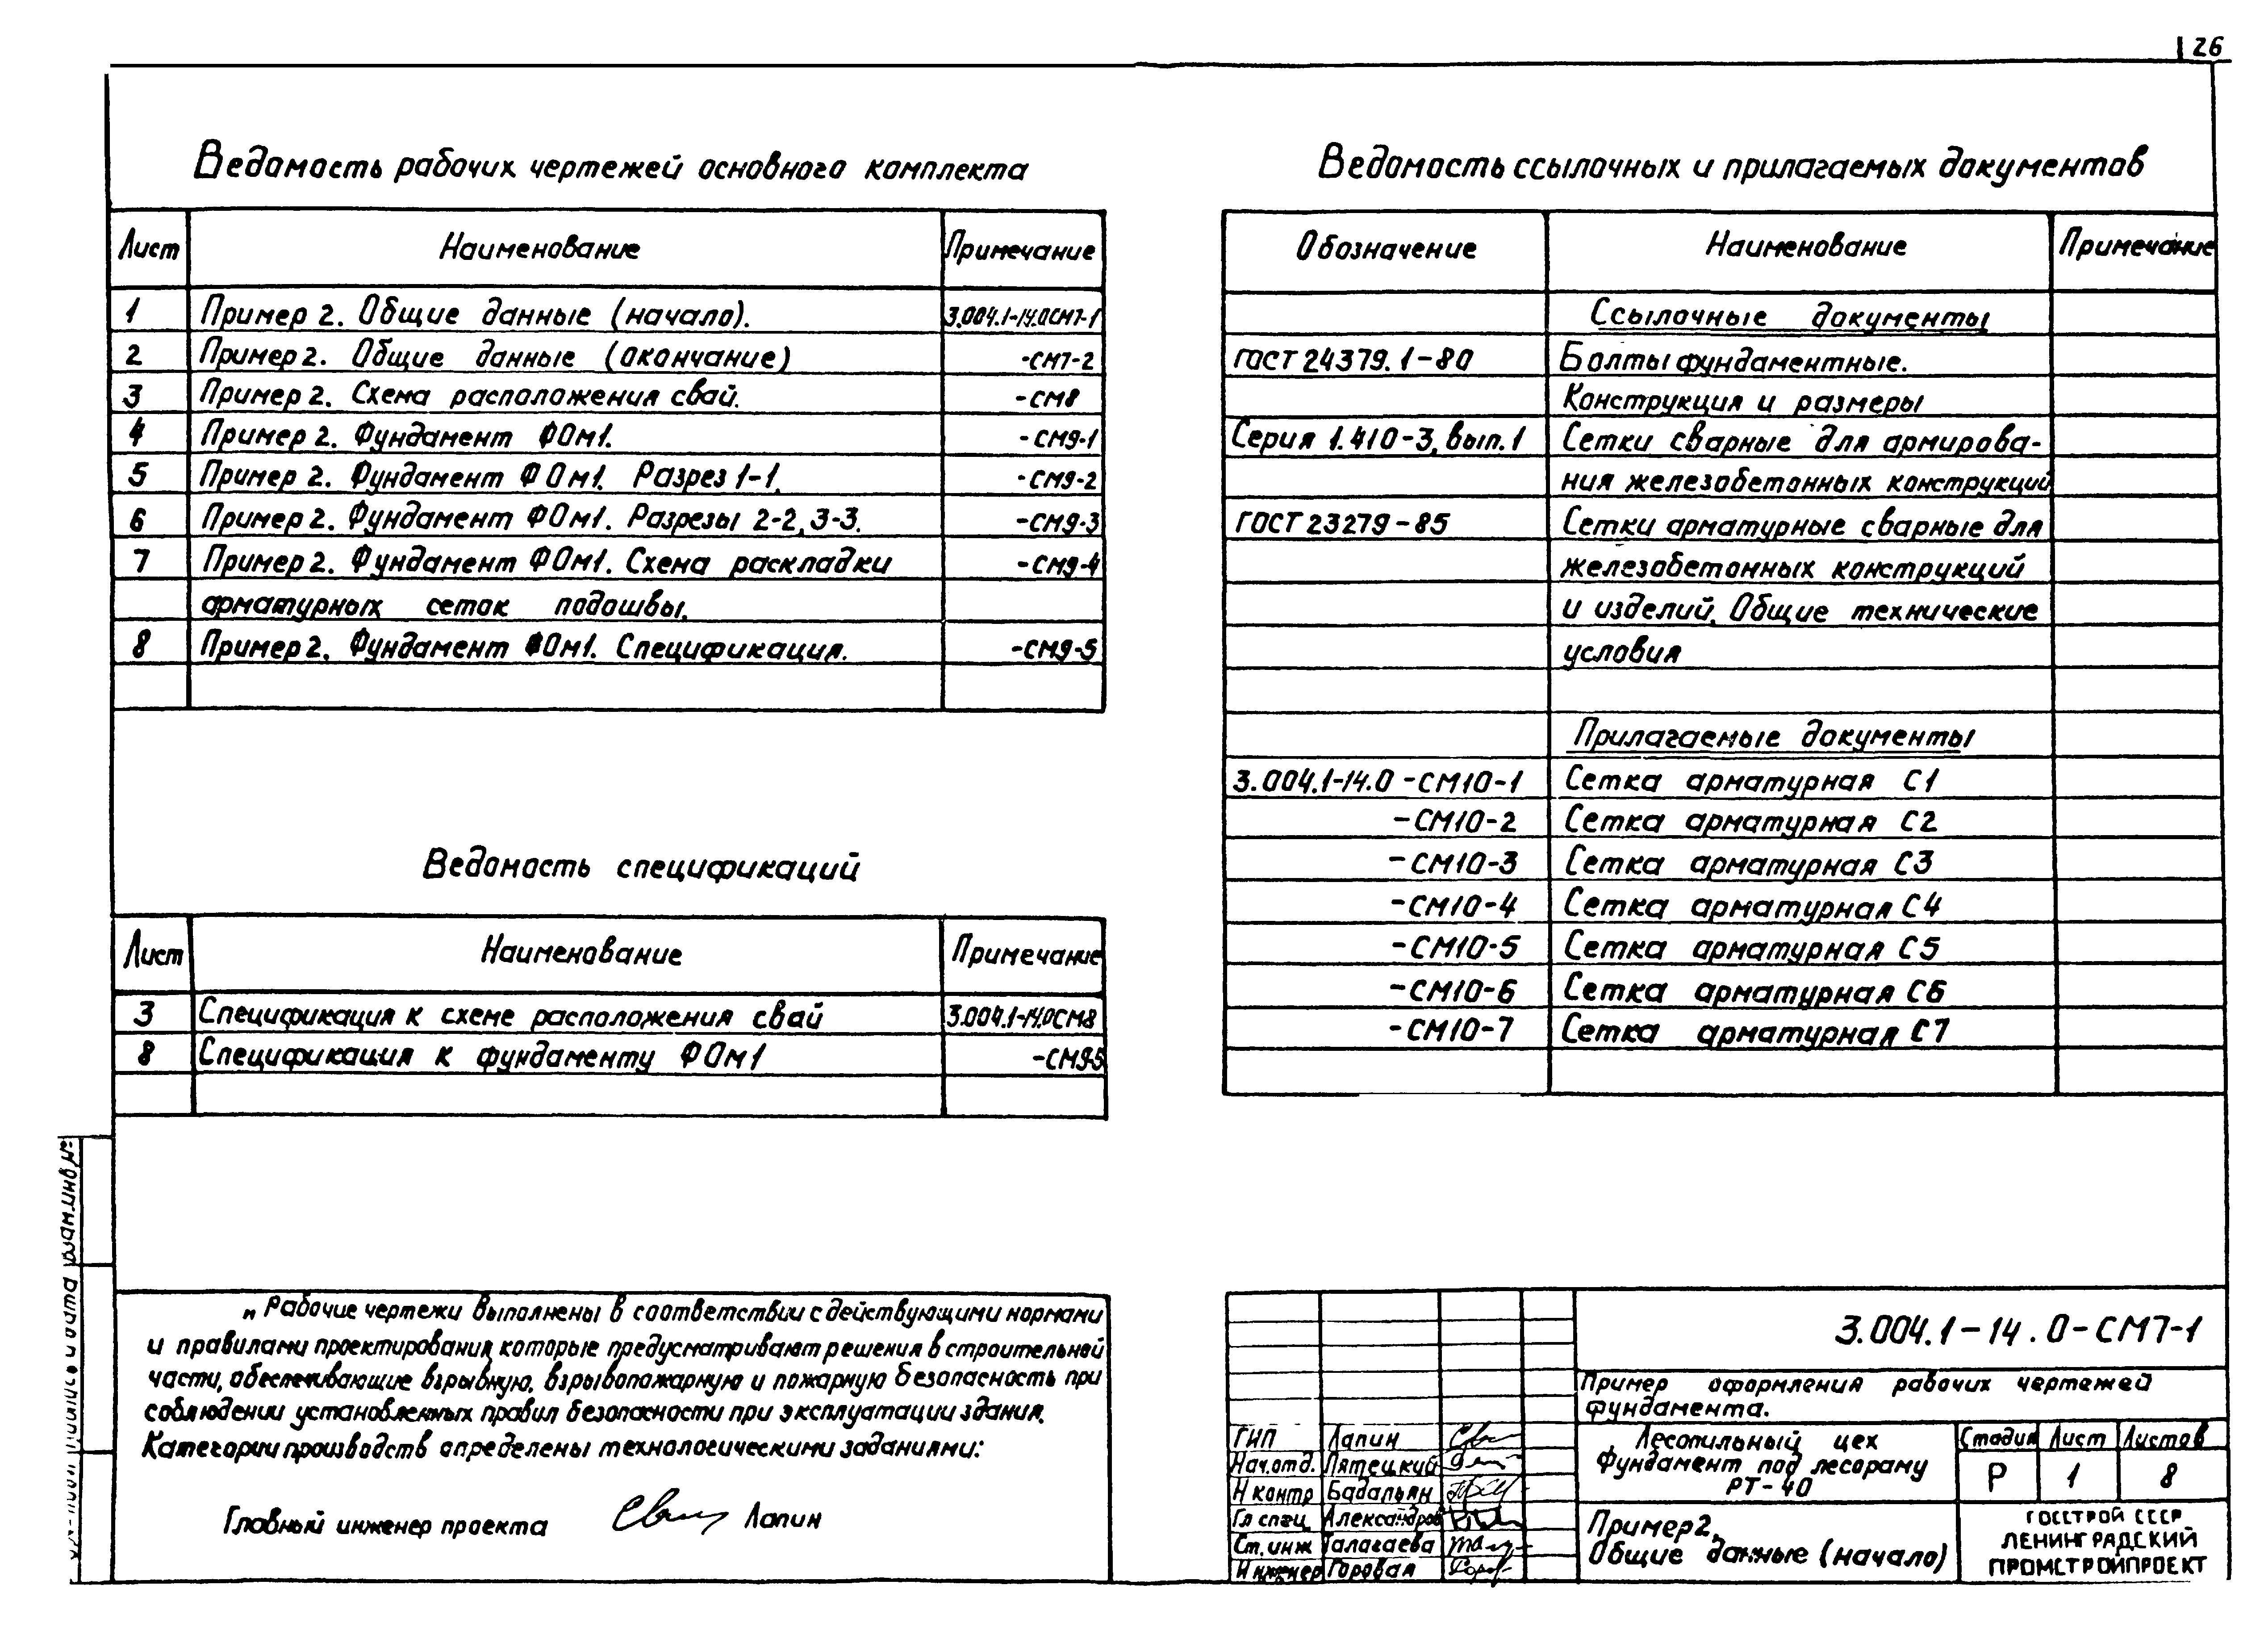 26
Ведомость рабочих чертежей основного комплекта
Лист Наименование Примечание
1 Пример 2. Общие данные (начало). 3.004.1-14.0СМ7-1
2 Пример 2. Общие данные (окончание) -СМ7-2
3 Пример 2. Схема расположения свай. -СМ8
4 Пример 2. Фундамент ФОм1. -СМ9-1
5 Пример 2. Фундамент ФОм1. Разрез 1-1. -СМ9-2
6 Пример 2. Фундамент ФОм1. Разрезы 2-2, 3-3. -СМ9-3
7 Пример 2. Фундамент ФОм1. Схема раскладки -СМ9-4
арматурных сеток подошвы.
8 Пример 2. Фундамент ФОм1. Спецификация. -СМ9-5
Ведомость спецификаций
Лист Наименование Примечание
3 Спецификация к схеме расположения свай 3.004.1-14.0СМ8
8 Спецификация к фундаменту ФОм1 -СМ9-5
„Рабочие чертежи выполнены в соответствии с действующими нормами
и правилами проектирования, которые предусматривают решения в строительной
части, обеспечивающие взрывную, взрывопожарную и пожарную безопасность при
соблюдении установленных правил безопасности при эксплуатации здания.
Категории производств определены технологическими заданиями:
Главный инженер проекта Лапин
Ведомость ссылочных и прилагаемых документов
Обозначение Наименование Примечание
Ссылочные документы
ГОСТ 24379.1-80 Болты фундаментные.
Конструкция и размеры
Серия 1.410-3, вып.1 Сетки сварные для армирова-
ния железобетонных конструкций
ГОСТ 23279-85 Сетки арматурные сварные для
железобетонных конструкций
и изделий. Общие технические
условия
Прилагаемые документы
3.004.1-14.0 -СМ10-1 Сетка арматурная С1
-СМ10-2 Сетка арматурная С2
-СМ10-3 Сетка арматурная С3
-СМ10-4 Сетка арматурная С4
-СМ10-5 Сетка арматурная С5
-СМ10-6 Сетка арматурная С6
-СМ10-7 Сетка арматурная С7
3.004.1-14.0-СМ7-1
Пример оформления рабочих чертежей
фундамента.
ГИП Лапин
Нач.отд. Пятецкий
Н контр Бадальян
Гл спец Александров
Ст. инж Талагаева
Инженер Горовая
Лесопильный цех
Фундамент под лесораму
РТ-40
Стадия Лист Листов
Р 1 8
Пример 2.
Общие данные (начало)
ГОССТРОЙ СССР
ЛЕНИНГРАДСКИЙ
ПРОМСТРОЙПРОЕКТ